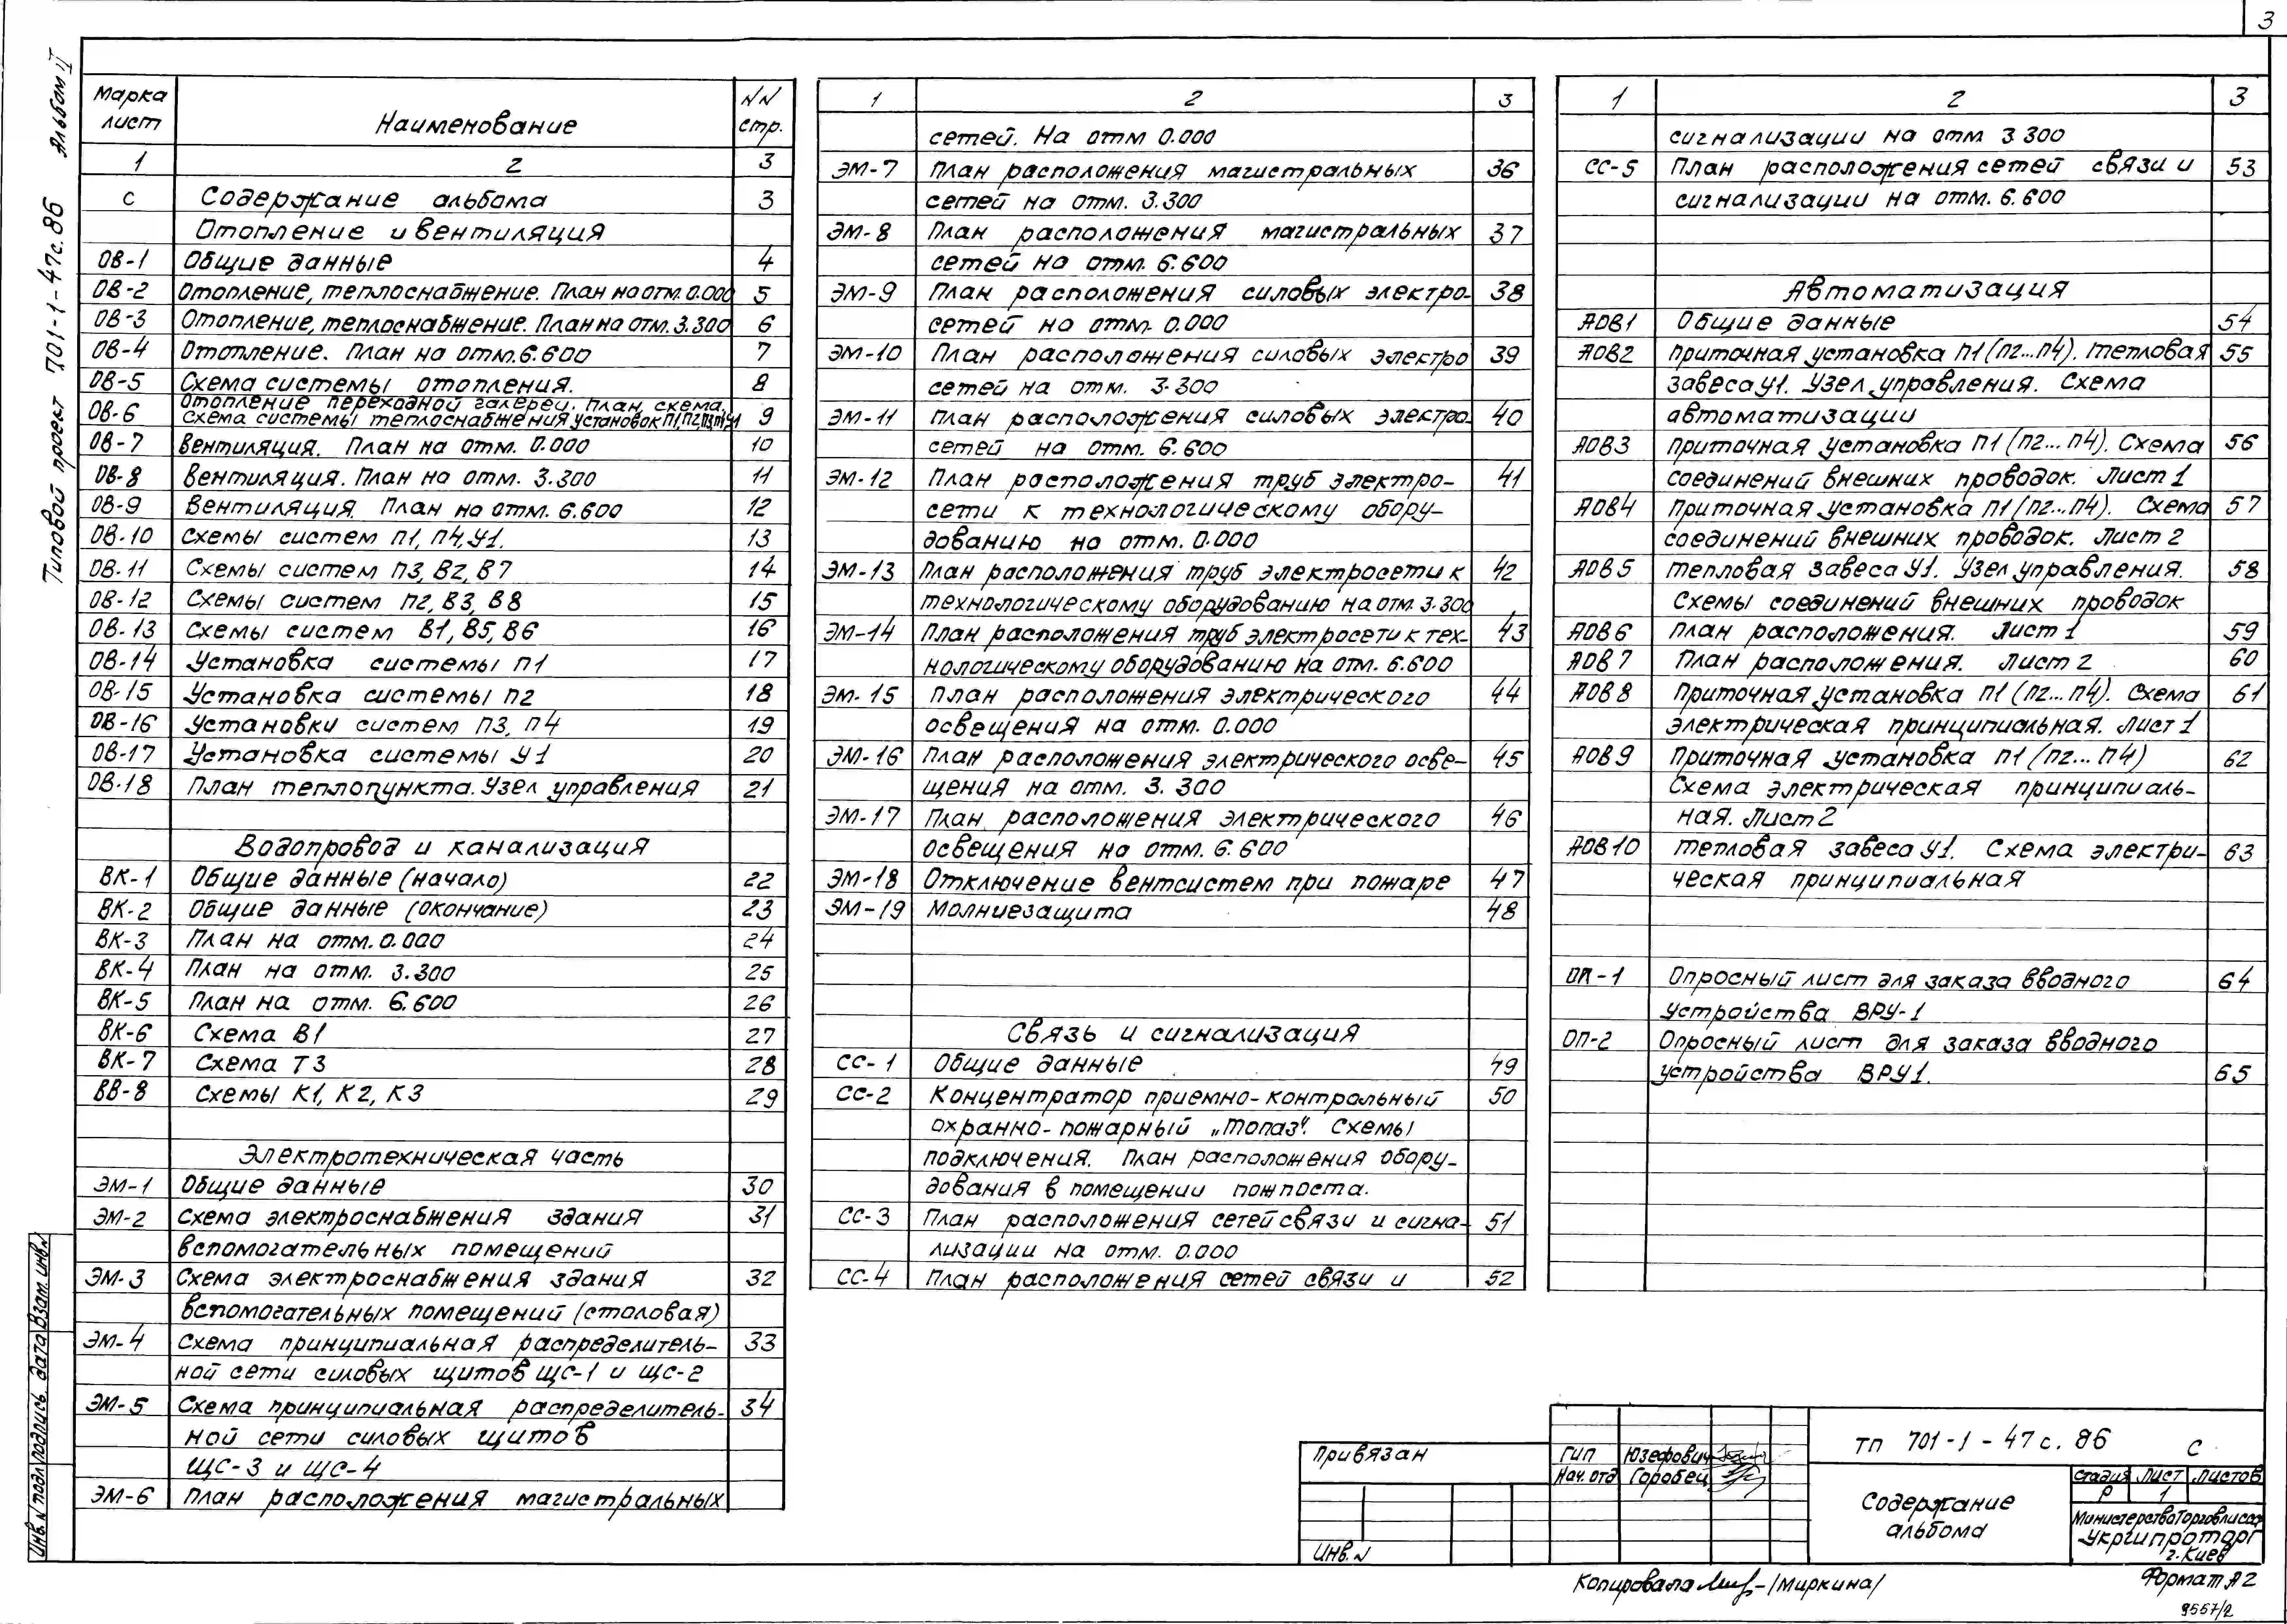 3
Альбом II
Типовой проект 701-1-47с.86
Марка лист Наименование NN стр.
1 2 3
С Содержание альбома 3
Отопление и вентиляция
ОВ-1 Общие данные 4
ОВ-2 Отопление, теплоснабжение. План на отм. 0.000 5
ОВ-3 Отопление, теплоснабжение. План на отм. 3.300 6
ОВ-4 Отопление. План на отм. 6.600 7
ОВ-5 Схема системы отопления. 8
ОВ-6 Отопление переходной галереи. План, схема.
Схема системы теплоснабжения установок П1, П2, П3, П4, У1 9
ОВ-7 Вентиляция. План на отм. 0.000 10
ОВ-8 Вентиляция. План на отм. 3.300 11
ОВ-9 Вентиляция. План на отм. 6.600 12
ОВ-10 Схемы систем П1, П4, У1. 13
ОВ-11 Схемы систем П3, В2, В7 14
ОВ-12 Схемы систем П2, В3, В8 15
ОВ-13 Схемы систем В1, В5, В6 16
ОВ-14 Установка системы П1 17
ОВ-15 Установка системы П2 18
ОВ-16 Установки систем П3, П4 19
ОВ-17 Установка системы У1 20
ОВ-18 План теплопункта. Узел управления 21
Водопровод и канализация
ВК-1 Общие данные (начало) 22
ВК-2 Общие данные (окончание) 23
ВК-3 План на отм. 0.000 24
ВК-4 План на отм. 3.300 25
ВК-5 План на отм. 6.600 26
ВК-6 Схема В1 27
ВК-7 Схема Т3 28
ВВ-8 Схемы К1, К2, К3 29
Электротехническая часть
ЭМ-1 Общие данные 30
ЭМ-2 Схема электроснабжения здания 31
вспомогательных помещений
ЭМ-3 Схема электроснабжения здания 32
вспомогательных помещений (столовая)
ЭМ-4 Схема принципиальная распределитель- 33
ной сети силовых щитов ЩС-1 и ЩС-2
ЭМ-5 Схема принципиальная распределитель- 34
ной сети силовых щитов
ЩС-3 и ЩС-4
ЭМ-6 План расположения магистральных
1 2 3
сетей. На отм 0.000
ЭМ-7 План расположения магистральных 36
сетей на отм. 3.300
ЭМ-8 План расположения магистральных 37
сетей на отм. 6.600
ЭМ-9 План расположения силовых электро- 38
сетей на отм. 0.000
ЭМ-10 План расположения силовых электро 39
сетей на отм. 3.300
ЭМ-11 План расположения силовых электро- 40
сетей на отм. 6.600
ЭМ-12 План расположения труб электро- 41
сети к технологическому обору-
дованию на отм. 0.000
ЭМ-13 План расположения труб электросети к 42
технологическому оборудованию на отм. 3.300
ЭМ-14 План расположения труб электросети к тех- 43
нологическому оборудованию на отм. 6.600
ЭМ-15 План расположения электрического 44
освещения на отм. 0.000
ЭМ-16 План расположения электрического осве- 45
щения на отм. 3.300
ЭМ-17 План расположения электрического 46
освещения на отм. 6.600
ЭМ-18 Отключение вентсистем при пожаре 47
ЭМ-19 Молниезащита 48
Связь и сигнализация
СС-1 Общие данные 49
СС-2 Концентратор приемно-контрольный 50
охранно-пожарный „Топаз“. Схемы
подключения. План расположения обору-
дования в помещении пожпоста.
СС-3 План расположения сетей связи и сигна- 51
лизации на отм. 0.000
СС-4 План расположения сетей связи и 52
1 2 3
сигнализации на отм 3.300
СС-5 План расположения сетей связи и 53
сигнализации на отм. 6.600
Автоматизация
АОВ1 Общие данные 54
АОВ2 Приточная установка П1 (П2...П4). Тепловая 55
завеса У1. Узел управления. Схема
автоматизации
АОВ3 Приточная установка П1 (П2...П4). Схема 56
соединений внешних проводок. Лист 1
АОВ4 Приточная установка П1 (П2...П4). Схема 57
соединений внешних проводок. Лист 2
АОВ5 Тепловая завеса У1. Узел управления. 58
Схемы соединений внешних проводок
АОВ6 План расположения. Лист 1 59
АОВ7 План расположения. Лист 2 60
АОВ8 Приточная установка П1 (П2...П4). Схема 61
электрическая принципиальная. Лист 1
АОВ9 Приточная установка П1 (П2...П4) 62
Схема электрическая принципиаль-
ная. Лист 2
АОВ10 Тепловая завеса У1. Схема электри- 63
ческая принципиальная
ОП-1 Опросный лист для заказа вводного 64
устройства ВРУ-1
ОП-2 Опросный лист для заказа вводного
устройства ВРУ1. 65
Инв. N подл. Подпись. Дата Взам. инв. N
Привязан
Инв. N
ГИП Юзефович
Нач. отд Горобец
ТП 701-1-47с.86 С
Содержание альбома
Стадия Лист Листов
Р 1
Министерство Торговли СССР
Укргипроторг
г. Киев
Копировала /Миркина/
Формат А2
9557/2